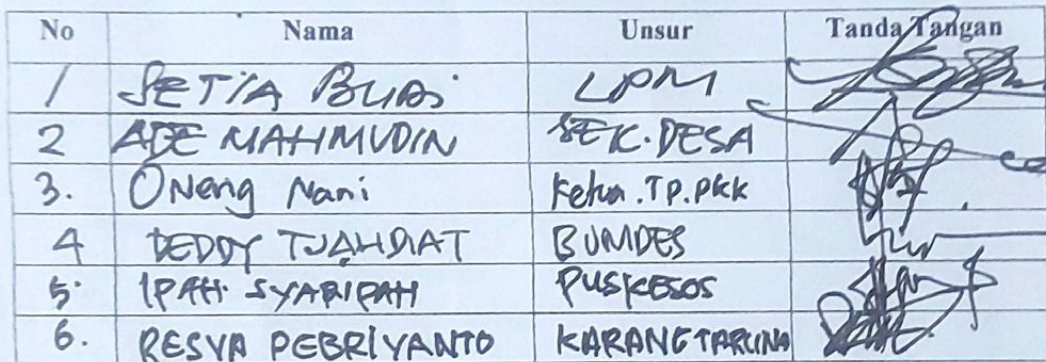 No Nama Unsur Tanda Tangan
1 SETIA BUDI LPM
2 ADE MAHMUDIN SEK.DESA
3. ONeng Nani Ketua .TP.PKK
4 DEDDY TJAHDIAT BUMDES
5. IPAH SYARIPAH PUSKESOS
6. RESYA PEBRIYANTO KARANGTARUNA